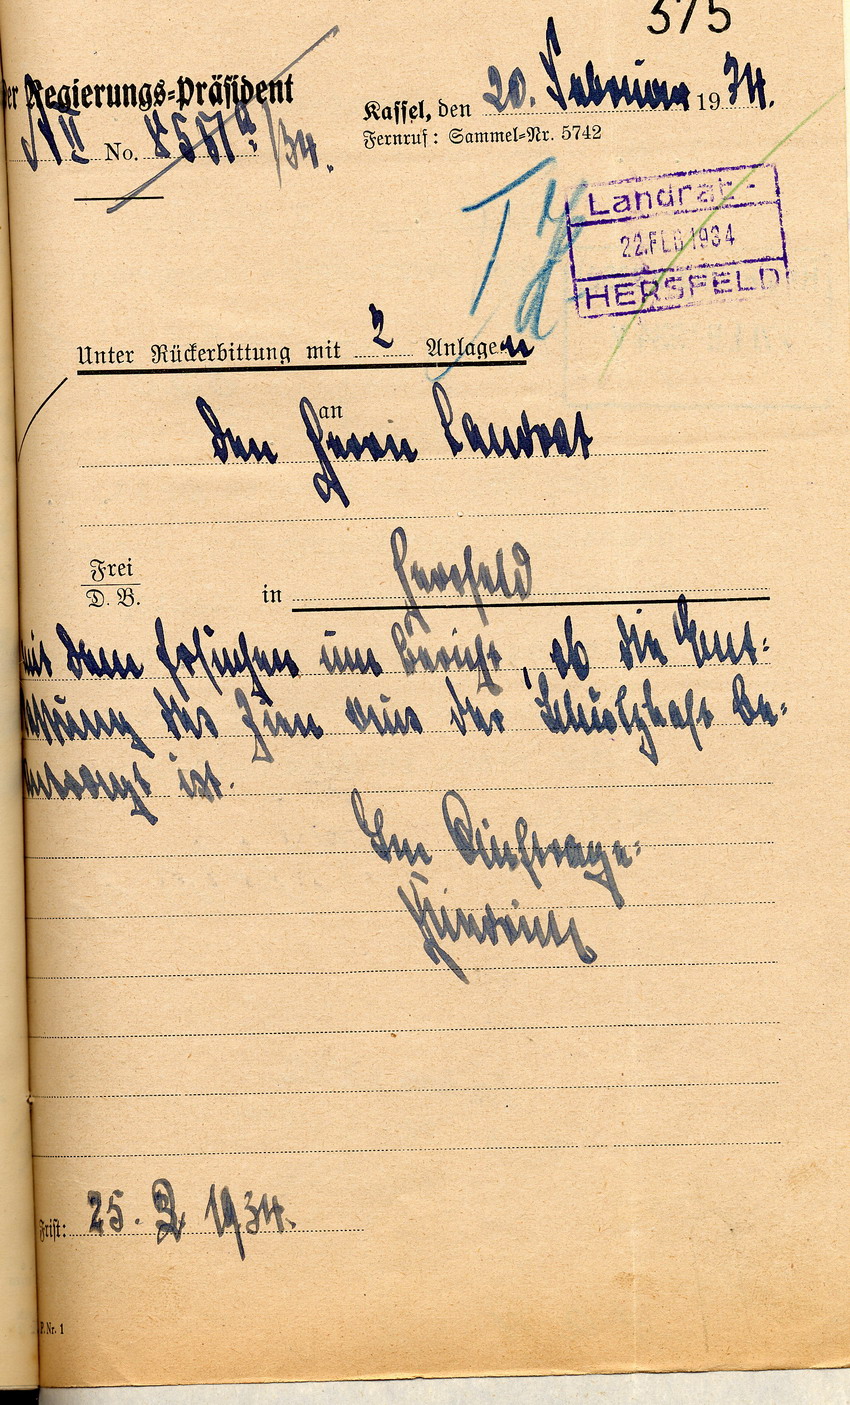 375
Der Regierungs-Präsident
Kassel, den 20. Februar 1934.
A II No. 8551a/34.
Fernruf: Sammel-Nr. 5742
Landrat-
22. FEB 1934
HERSFELD
Unter Rückerbittung mit 2 Anlagen
an
den Herrn Landrat
Frei
D. B.
in Hersfeld
mit dem Ersuchen um Bericht, ob die Ent-
lassung des Zinn aus der Schutzhaft be-
antragt ist.
Im Auftrage:
Frist: 25. 2. 1934.
P. Nr. 1